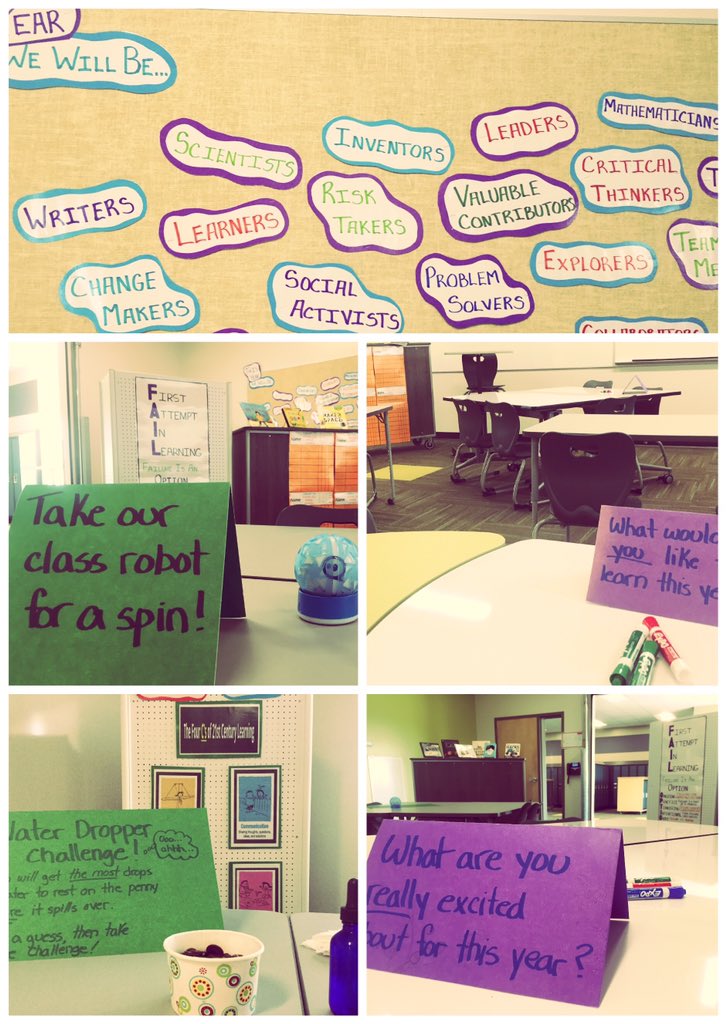 EAR
WE WILL BE...
SCIENTISTS
INVENTORS
LEADERS
MATHEMATICIANS
WRITERS
LEARNERS
RISK
TAKERS
VALUABLE
CONTRIBUTORS
CRITICAL
THINKERS
CHANGE
MAKERS
SOCIAL
ACTIVISTS
PROBLEM
SOLVERS
EXPLORERS
TEAM
ME
COLLABORATORS
FIRST
ATTEMPT
IN
LEARNING
FAILURE IS AN
OPTION
Take our
class robot
for a spin!
What would
you like
learn this ye
The Four C's of 21st Century Learning
Communication
Water Dropper
Challenge!
Ooo..
ahhh..
will get the most drops
to rest on the penny
it spills over.
a guess, then take
challenge!
FIRST
ATTEMPT
IN
LEARNING
FAILURE IS AN
OPTION
What are you
really excited
bout for this year?
EXPO